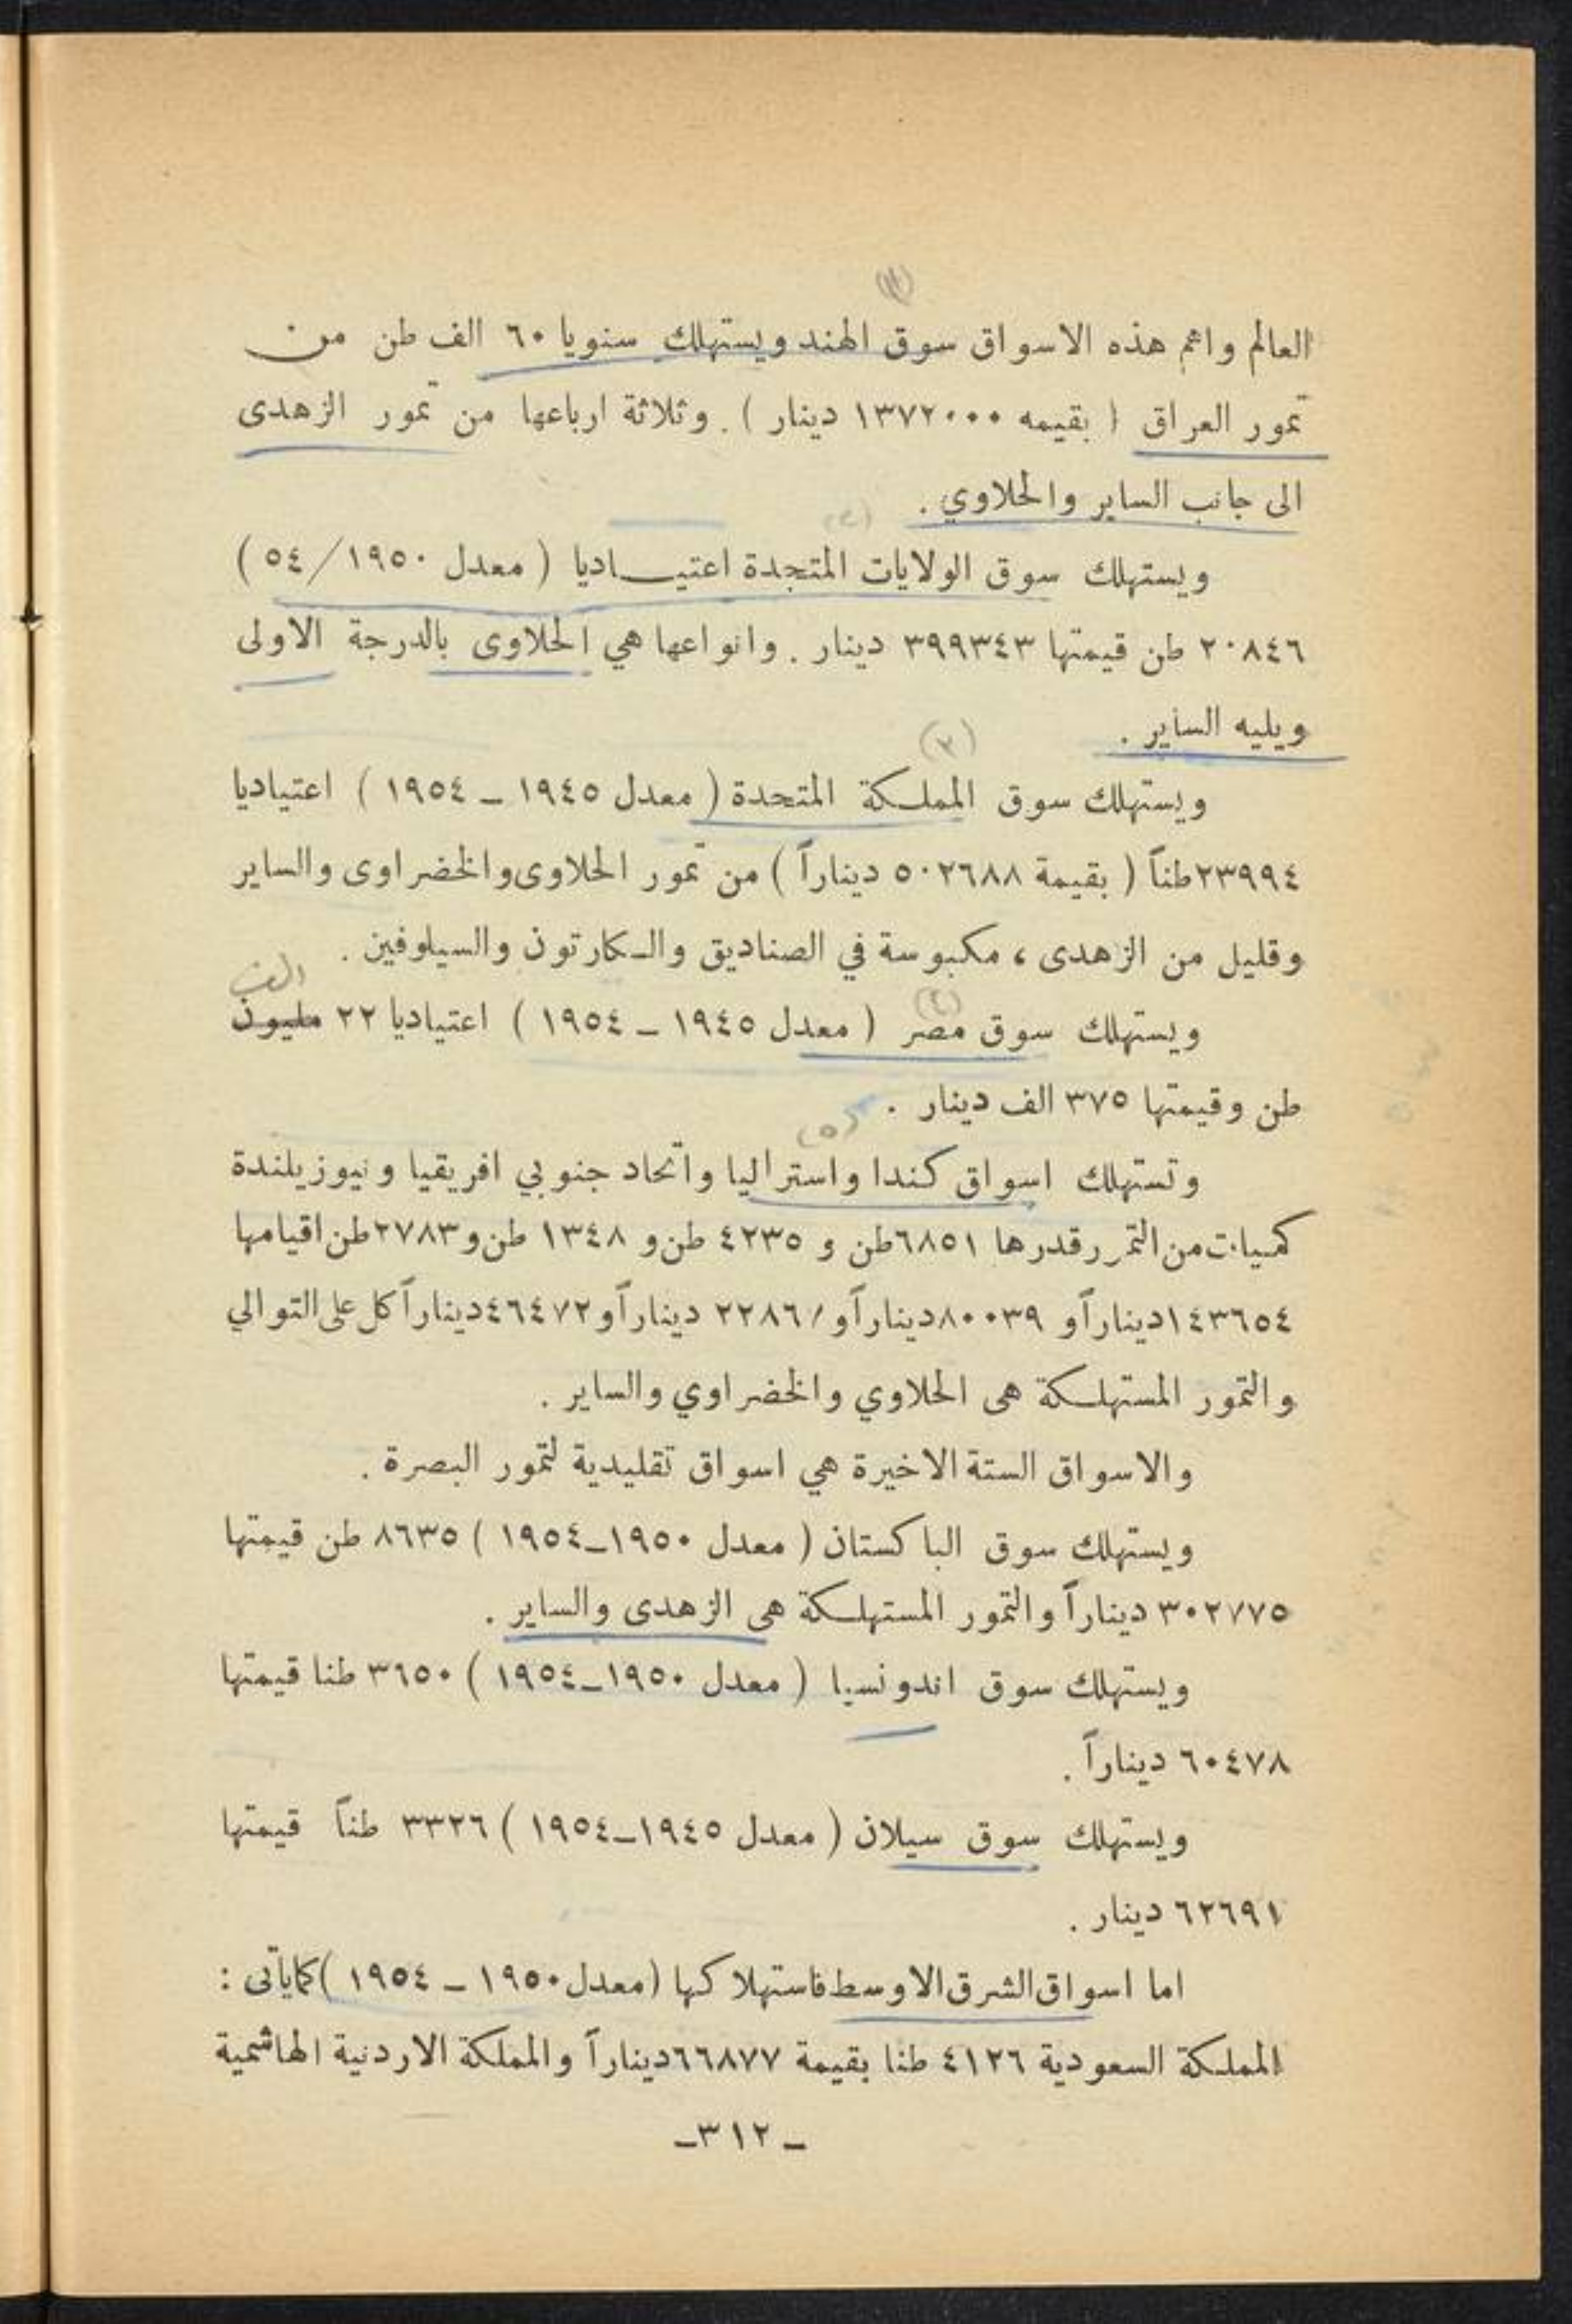 (١)
العالم واهم هذه الاسواق سوق الهند ويستهلك سنويا ٦٠ الف طن من
تمور العراق ( بقيمه ١٣٧٢٠٠٠ دينار ) . وثلاثة ارباعها من تمور الزهدى
الى جانب الساير والحلاوي .
(٢)
ويستهلك سوق الولايات المتحدة اعتيـــاديا ( معدل ١٩٥٠/٥٤ )
٢٠٨٤٦ طن قيمتها ٣٩٩٣٤٣ دينار . وانواعها هي الحلاوى بالدرجة الاولى
ويليه الساير .
(٣)
ويستهلك سوق المملكة المتحدة ( معدل ١٩٤٥ ـ ١٩٥٤ ) اعتياديا
٢٣٩٩٤ طناً ( بقيمة ٥٠٢٦٨٨ ديناراً ) من تمور الحلاوى والخضراوى والساير
وقليل من الزهدى ، مكبوسة في الصناديق والكارتون والسيلوفين .
الف
(٤)
ويستهلك سوق مصر ( معدل ١٩٤٥ ـ ١٩٥٤ ) اعتياديا ٢٢ مليون
طن وقيمتها ٣٧٥ الف دينار .
(٥)
وتستهلك اسواق كندا واستراليا واتحاد جنوبي افريقيا ونيوزيلندة
كميات من التمر رقدرها ٦٨٥١ طن و ٤٢٣٥ طن و ١٣٤٨ طن و ٢٧٨٣ طن اقيامها
١٤٣٦٥٤ ديناراً و ٨٠٠٣٩ ديناراً و ٢٢٨٦١ ديناراً و ٤٦٤٧٢ ديناراً كل على التوالي
والتمور المستهلكة هى الحلاوي والخضراوي والساير .
والاسواق الستة الاخيرة هي اسواق تقليدية لتمور البصرة .
ويستهلك سوق الباكستان ( معدل ١٩٥٠ـ١٩٥٤ ) ٨٦٣٥ طن قيمتها
٣٠٢٧٧٥ ديناراً والتمور المستهلكة هى الزهدى والساير .
ويستهلك سوق اندونسيا ( معدل ١٩٥٠ـ١٩٥٤ ) ٣٦٥٠ طنا قيمتها
٦٠٤٧٨ ديناراً .
ويستهلك سوق سيلان ( معدل ١٩٤٥ـ١٩٥٤ ) ٣٣٢٦ طناً قيمتها
٦٢٦٩١ دينار .
اما اسواق الشرق الاوسط فاستهلاكها (معدل ١٩٥٠ ـ ١٩٥٤ ) كما يأتى :
المملكة السعودية ٤١٢٦ طنا بقيمة ٦٦٨٧٧ ديناراً والمملكة الاردنية الهاشمية
ـ ٣١٢ ـ